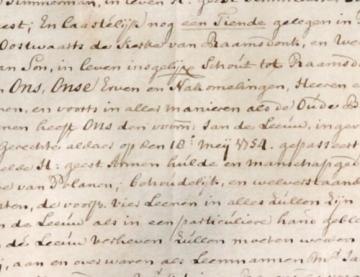 Timmerman, in leven
eest; En Laastelijk nog een Tiende gelegen in
Oostwaarts de Kerke van Raamsdonk, en We
van Son, in leven insgelijx Schout tot Raamsd
Ons, Onse Erven en Nakomelingen, Heeren e
en, en voorts in alles manieren als de Oude B
nen heeft Ons den voorn: Jan de Leeuw, inge
Gerechte aldaer op den 10:e Meij 1754. gepasseert
else H: geest Armen hulde en manschap ged
e van Polanen; behoudelijk, en welverstaan
sten, de voorsz. vier Leenen in alles zullen zijn
n de Leeuw als in een particuliere hand gebl
n de Leeuw verheven zullen moeten worden
j, aan en overwaren als Leenmannen Mr. Ja